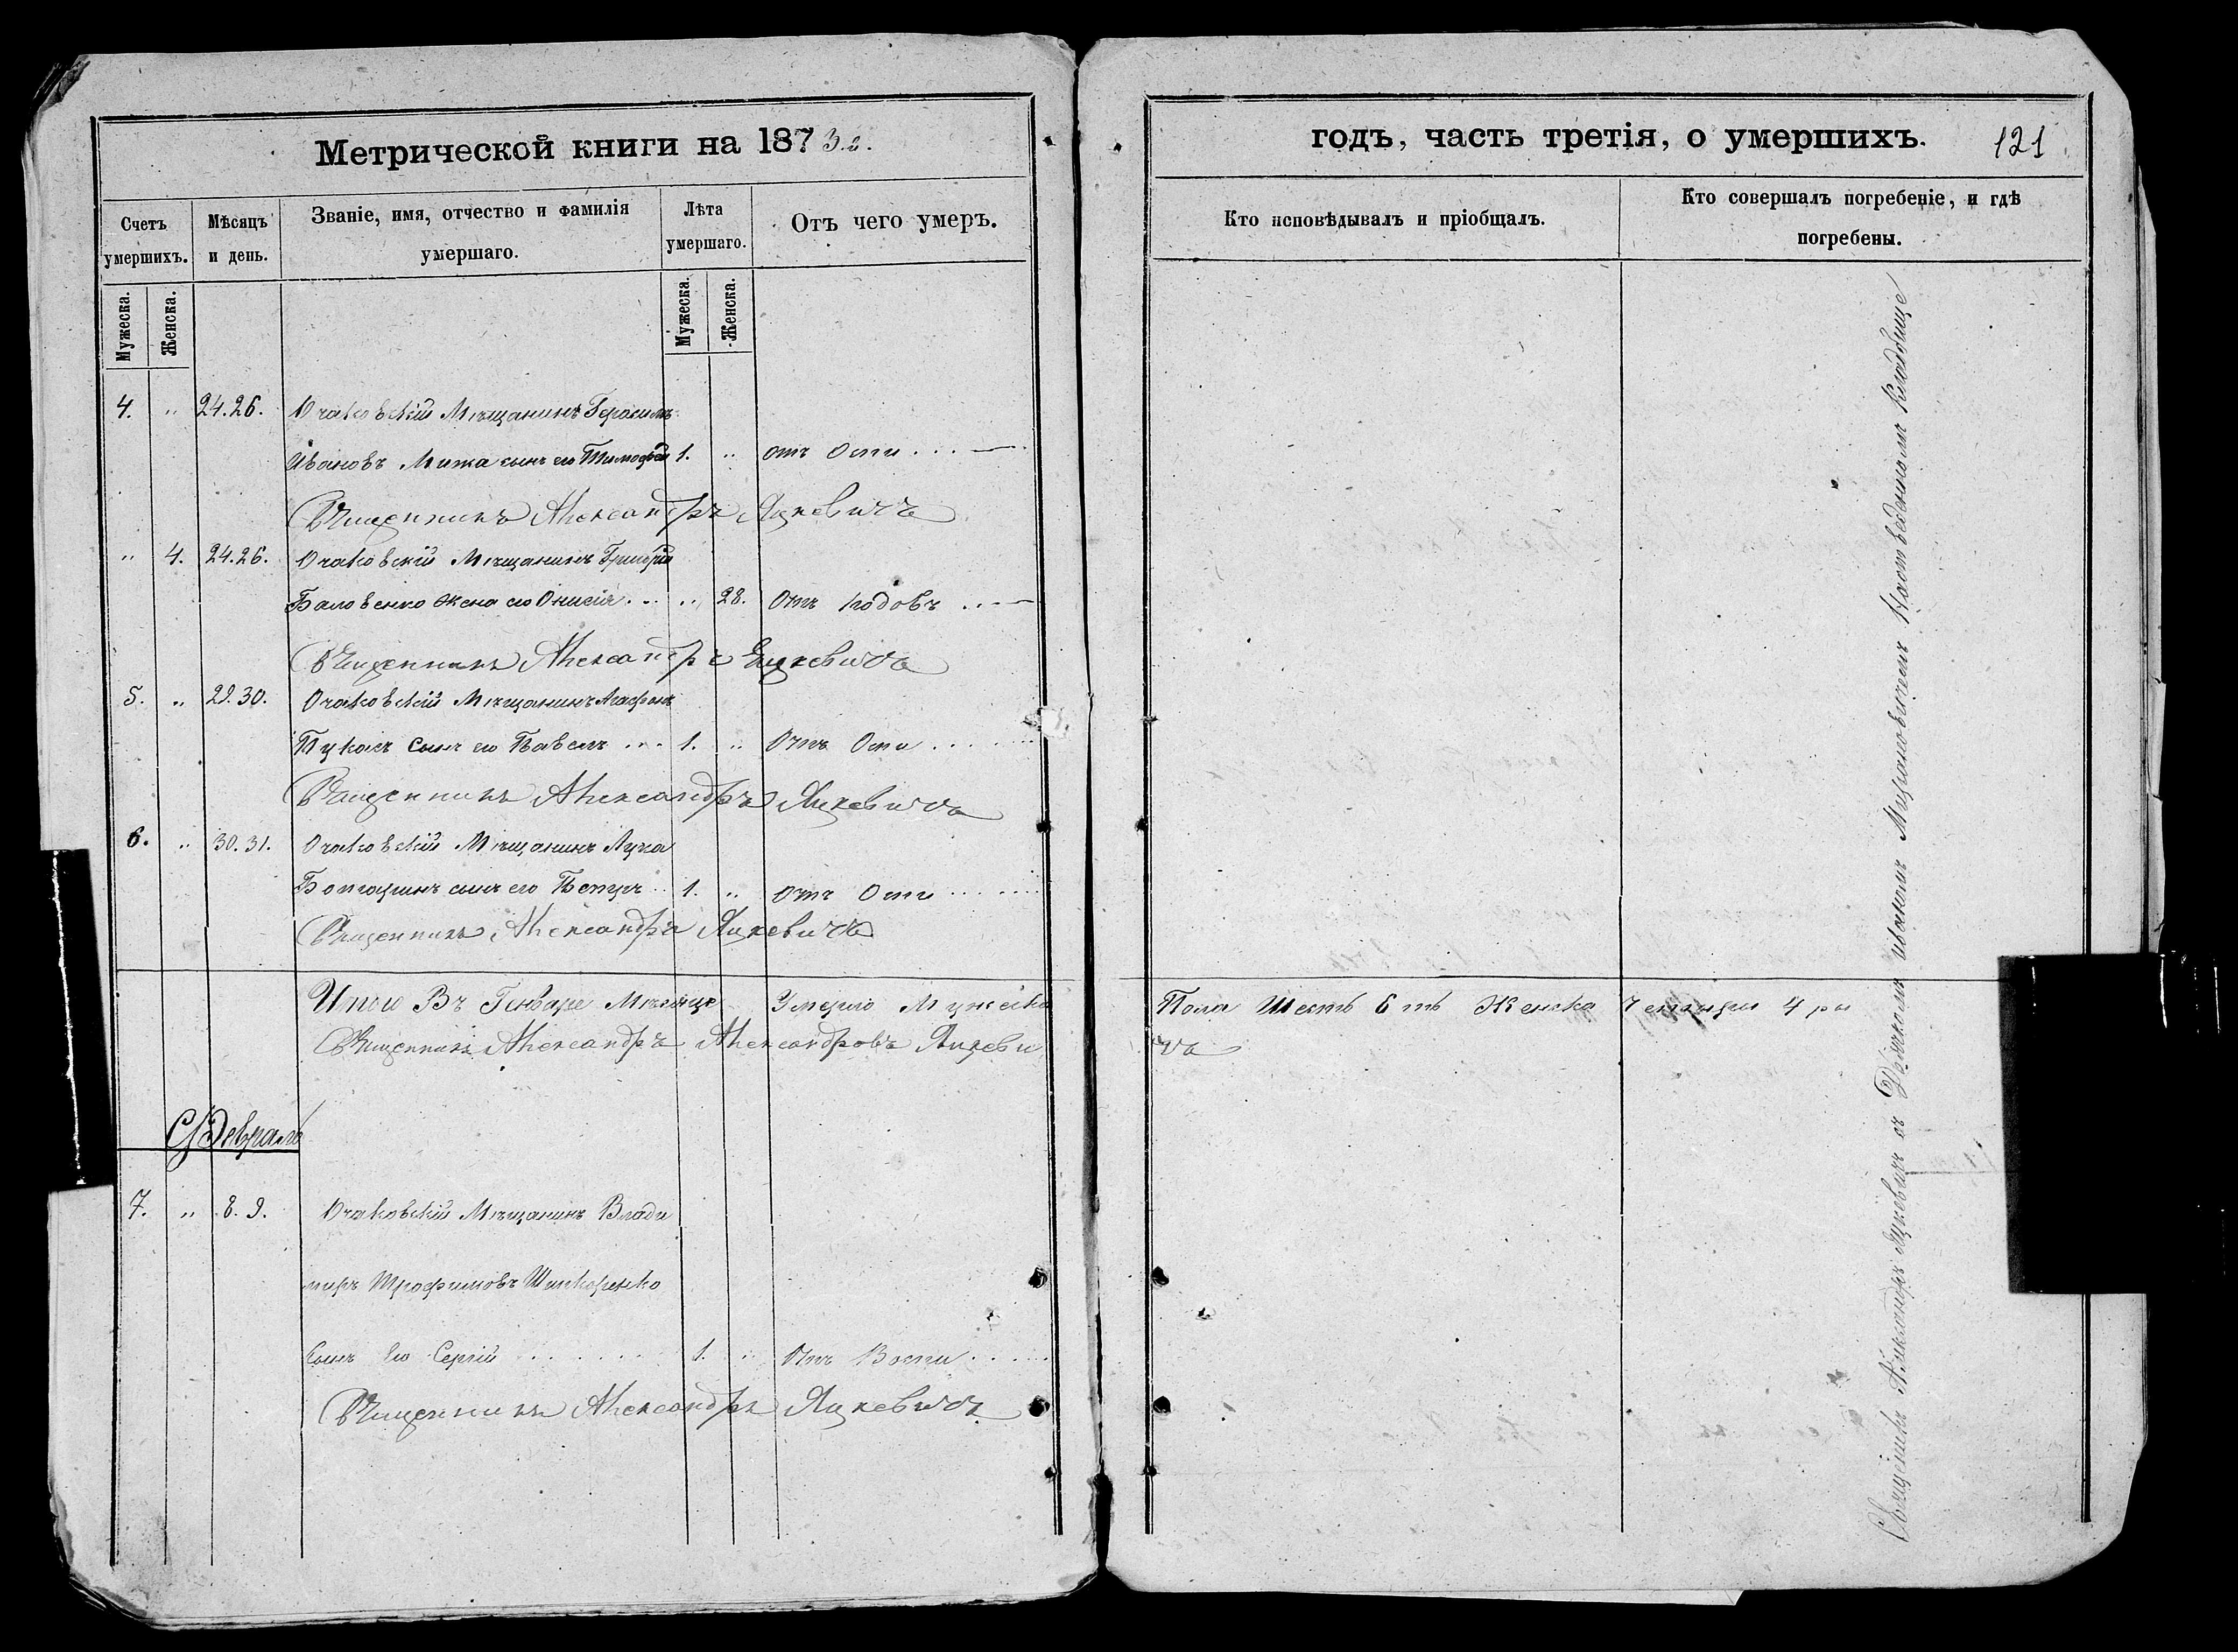 Метрической книги на 1873 г.
Счетъ умершихъ.
Мужеска.
Женска.
Мѣсяцъ и день.
Званіе, имя, отчество и фамилія умершаго.
Лѣта умершаго.
Мужеска.
Женска.
Отъ чего умеръ.
4. „ 24. 26. Очаковскій Мѣщанинъ Герасимъ
Ивановъ сынъ его Тимофей 1. „ отъ Оспи
Священникъ Александръ Яцкевичъ
„ 4. 24. 26. Очаковскій Мѣщанинъ Григорій
Баловенко жена его Онисія „ 28. Отъ родовъ
Священникъ Александръ Яцкевичъ
5. „ 29. 30. Очаковскій Мѣщанинъ Агафонъ
сынъ его Павелъ 1. „ Отъ Оспи
Священникъ Александръ Яцкевичъ
6. „ 30. 31. Очаковскій Мѣщанинъ Лука
сынъ его Петръ 1. „ отъ Оспи
Священникъ Александръ Яцкевичъ
Итого Въ Генваре Мѣсяце Умерло Мужеска
Священникъ Александръ Александровъ Яцкеви
Февраль
7. „ 8. 9. Очаковскій Мѣщанинъ Влади
миръ Трофимовъ Шинкоренко
сынъ Его Сергій 1. „ Отъ Воспи
Священникъ Александръ Яцкевичъ
годъ, часть третія, о умершихъ.
121
Кто исповѣдывалъ и пріобщалъ.
Кто совершалъ погребеніе, и гдѣ
погребены.
Пола Шесть 6 ть Женска Четыри 4 ри
чъ
Священникъ Александръ Яцкевичъ съ Дьячкомъ Мирановичемъ Кладбище